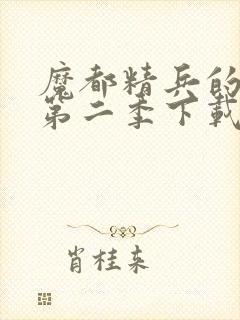 魔都精兵的
第二季下载
肖桂来